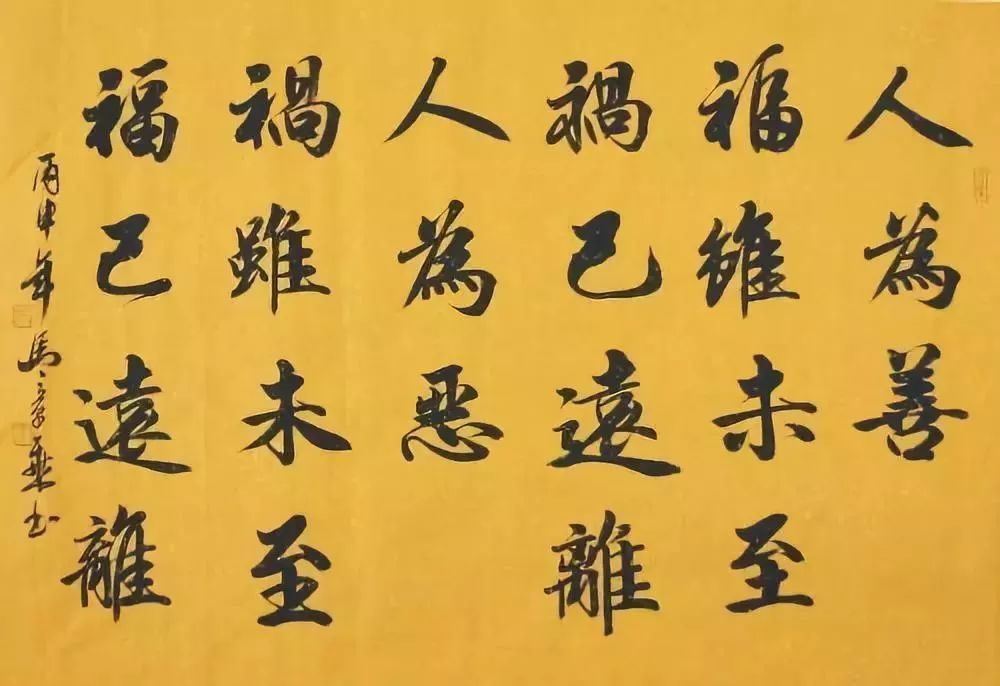 人為善
福雖未至
禍已遠離
人為惡
禍雖未至
福已遠離
丙申年馬書